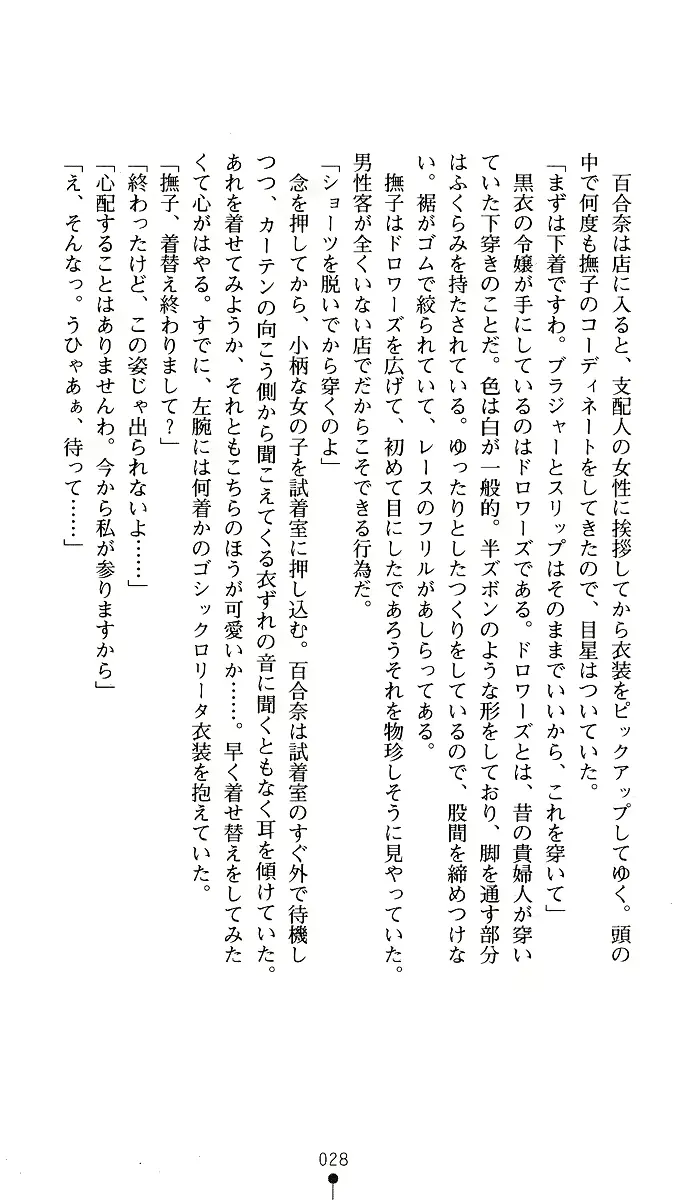 百合奈は店に入ると、支配人の女性に挨拶してから衣装をピックアップしてゆく。頭の
中で何度も撫子のコーディネートをしてきたので、目星はついていた。
「まずは下着ですわ。ブラジャーとスリップはそのままでいいから、これを穿いて」
黒衣の令嬢が手にしているのはドロワーズである。ドロワーズとは、昔の貴婦人が穿い
ていた下穿きのことだ。色は白が一般的。半ズボンのような形をしており、脚を通す部分
はふくらみを持たされている。ゆったりとしたつくりをしているので、股間を締めつけな
い。裾がゴムで絞られていて、レースのフリルがあしらってある。
撫子はドロワーズを広げて、初めて目にしたであろうそれを物珍しそうに見やっていた。
男性客が全くいない店でだからこそできる行為だ。
「ショーツを脱いでから穿くのよ」
念を押してから、小柄な女の子を試着室に押し込む。百合奈は試着室のすぐ外で待機し
つつ、カーテンの向こう側から聞こえてくる衣ずれの音に聞くともなく耳を傾けていた。
あれを着せてみようか、それともこちらのほうが可愛いか……。早く着せ替えをしてみた
くて心がはやる。すでに、左腕には何着かのゴシックロリータ衣装を抱えていた。
「撫子、着替え終わりまして？」
「終わったけど、この姿じゃ出られないよ……」
「心配することはありませんわ。今から私が参りますから」
「え、そんなっ。うひゃあぁ、待って……」
028